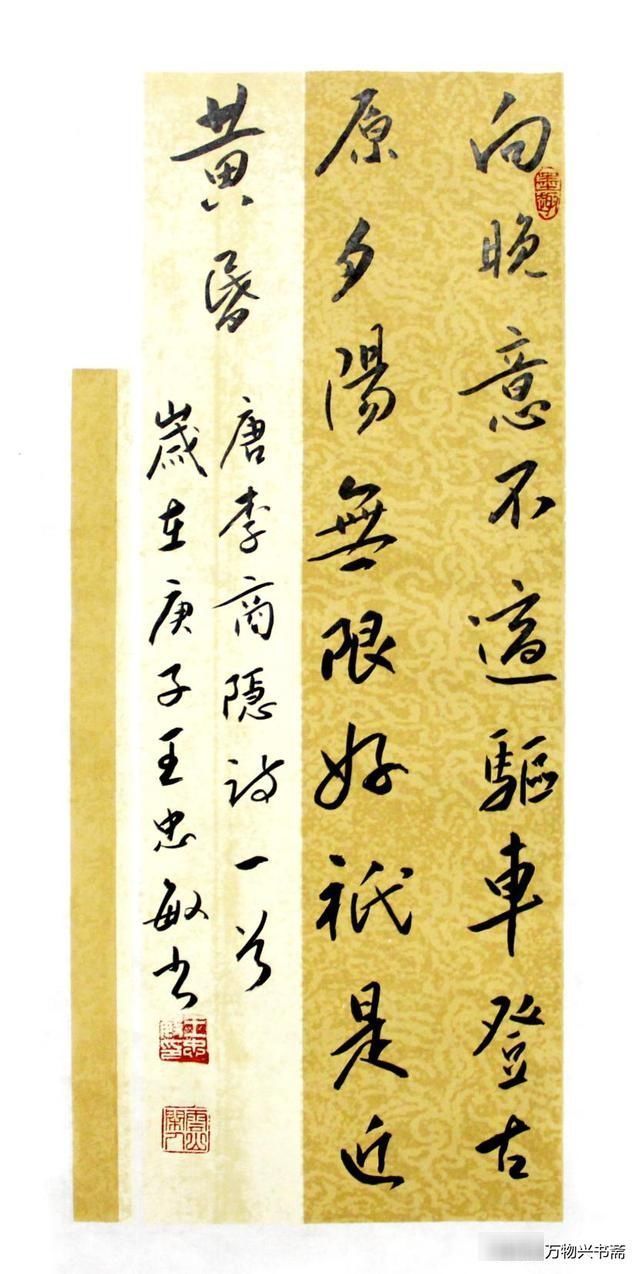 向晚意不適驅車登古
原夕陽無限好祇是近
黃昏
唐李商隱詩一首
歲在庚子王忠敏书
墨趣
王忠敏印
万物兴书斋